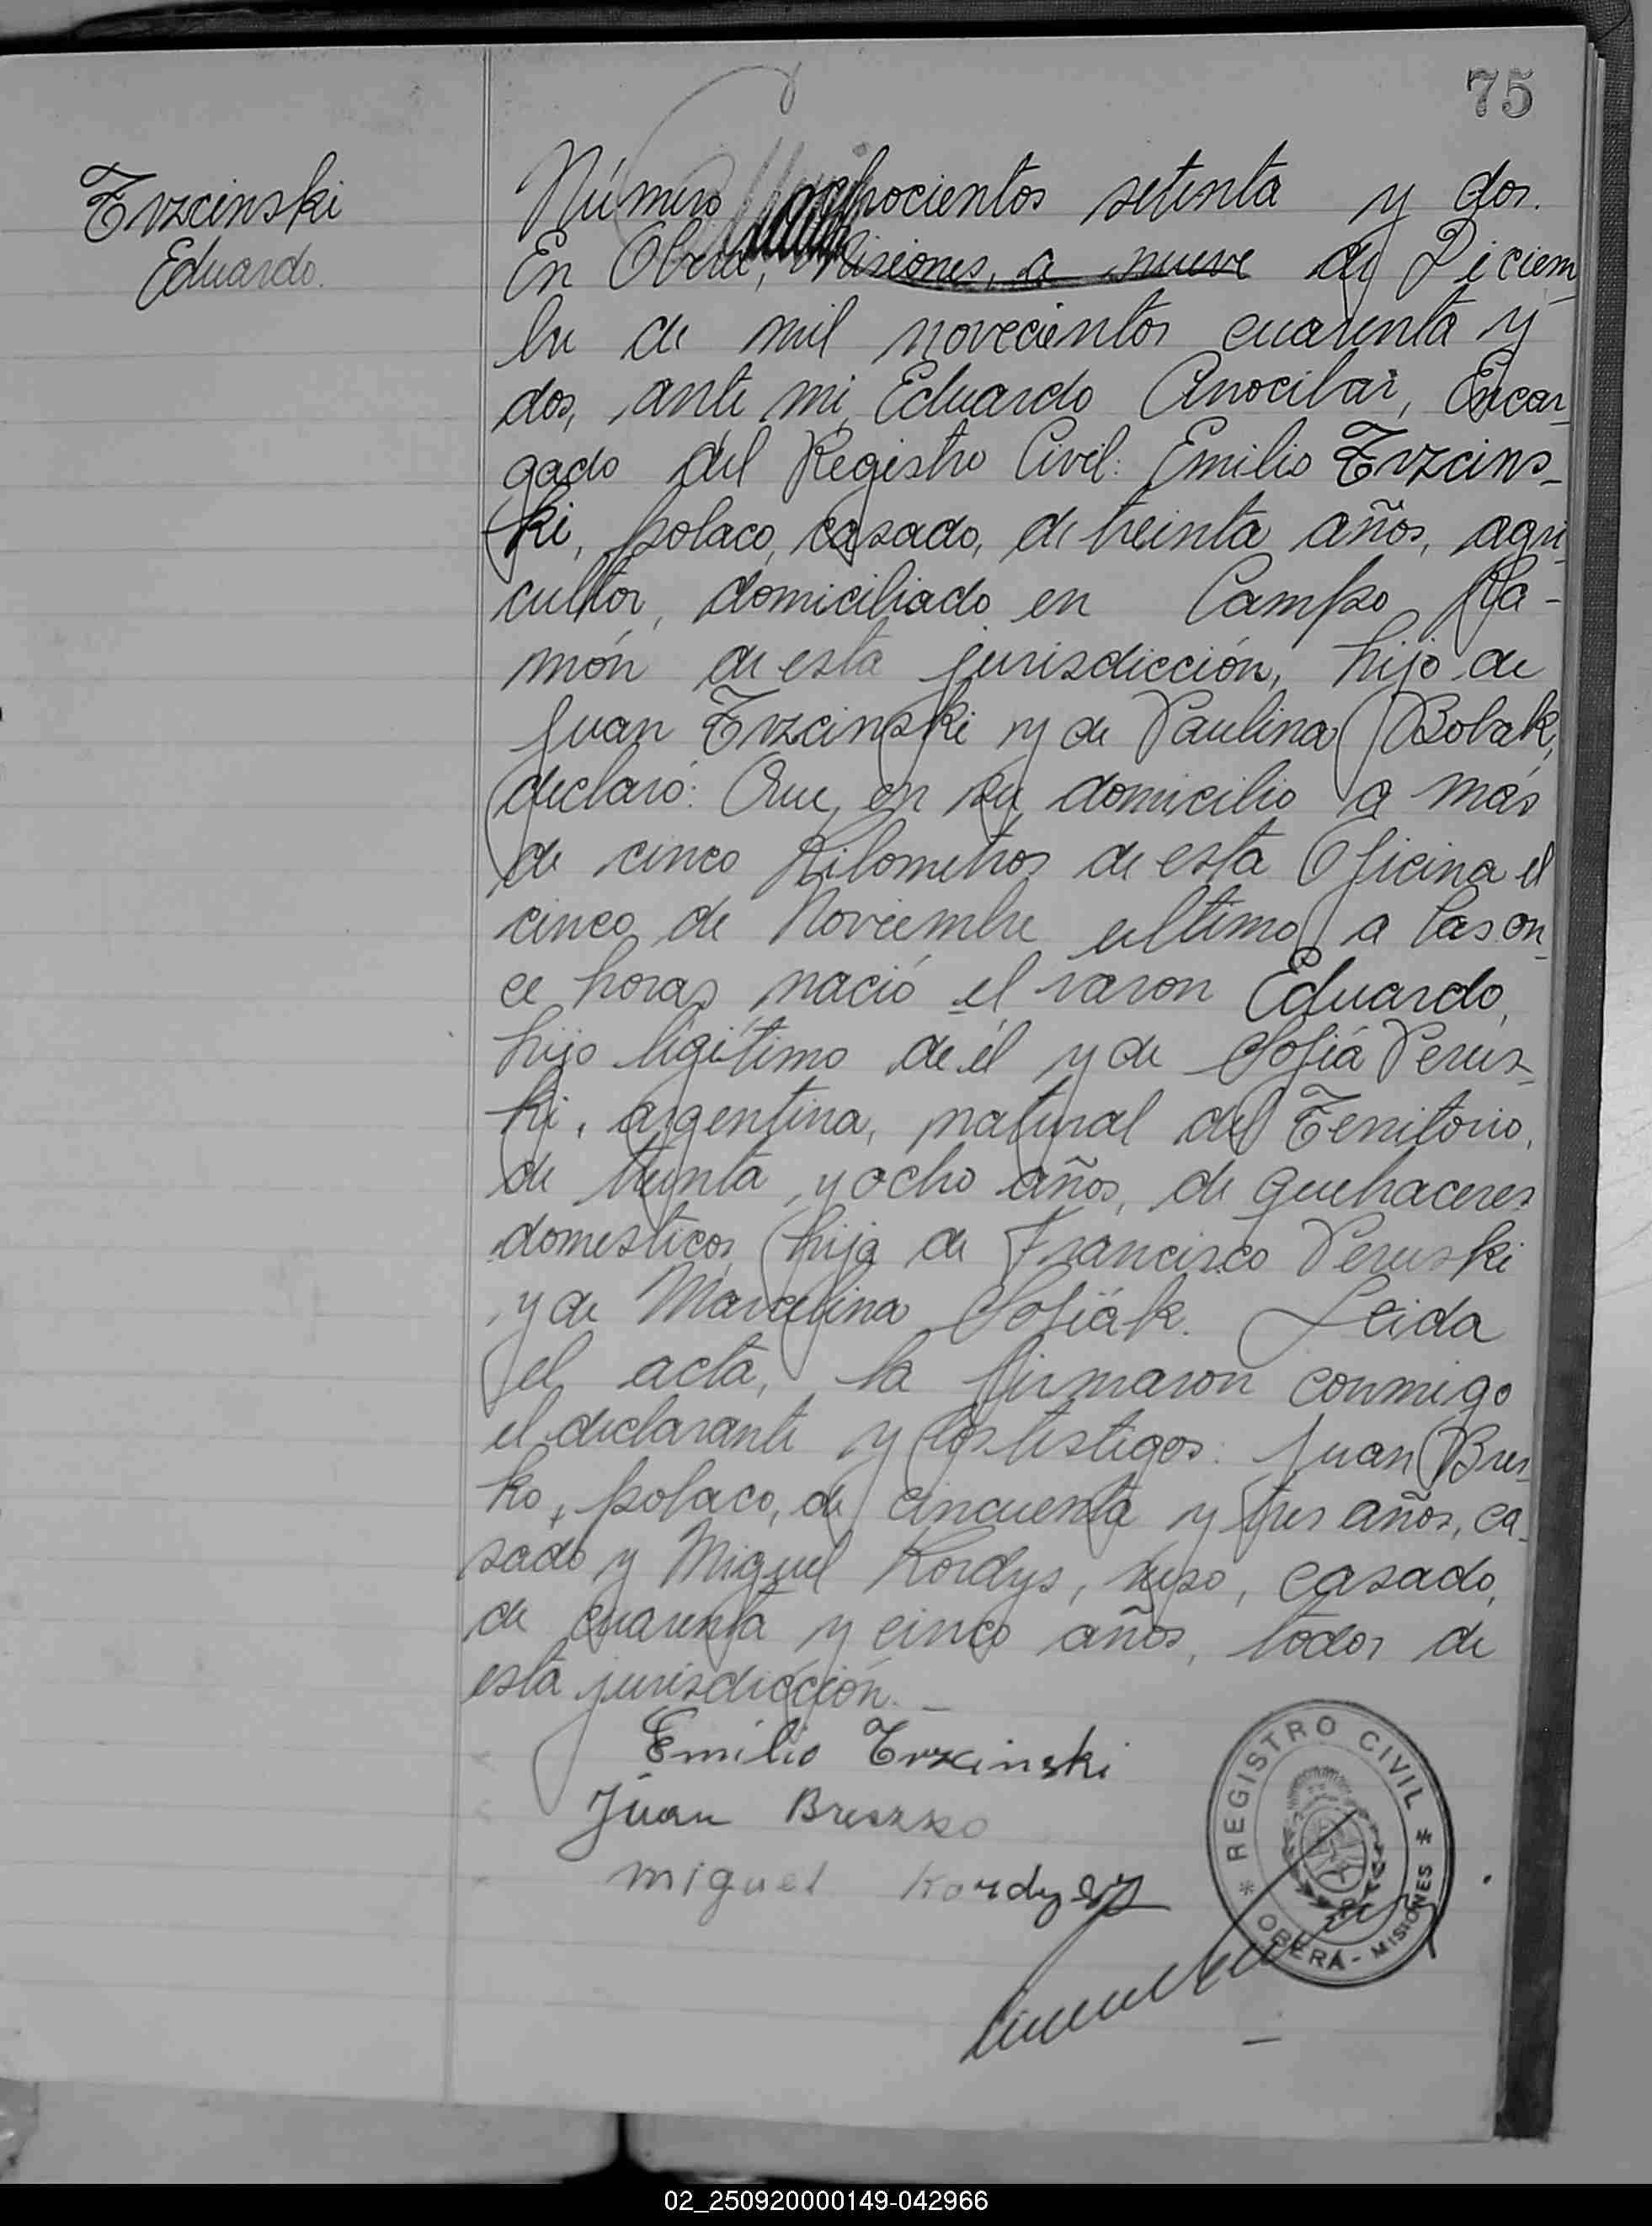 75
Trzcinski
Eduardo.
Número ochocientos setenta y dos.
En Oberá, Misiones, a nueve de Diciem
bre de mil novecientos cuarenta y
dos, ante mi, Eduardo Anocibar, Encar
gado del Registro Civil: Emilio Trzcins-
ki, polaco, casado, de treinta años, agri
cultor, domiciliado en Campo Ra-
món de esta jurisdicción, hijo de
Juan Trzcinski y de Paulina Bobak,
declaró: Que en su domicilio a más
de cinco Kilometros de esta Oficina el
cinco de Noviembre ultimo a las on
ce horas nació el varon Eduardo,
hijo legítimo de él y de Sofiá Perus-
ki, argentina, natural del Territorio,
de treinta y ocho años, de quehaceres
domesticos, hija de Francisco Peruski
y de Marcelina Sofiák. Leida
el acta, la firmaron conmigo
el declarante y los testigos: Juan Bres
ko, polaco, de cincuenta y tres años, ca-
sado y Miguel Kordys, ruso, casado,
de cuarenta y cinco años, todos de
esta jurisdicción.-
Emilio Trzcinski
Juan Breszko
miguel
REGISTRO CIVIL
OBERÁ - MISIONES
02_250920000149-042966